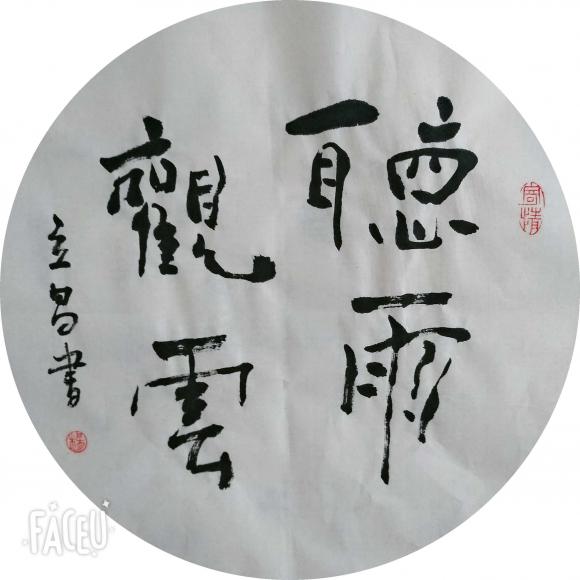 聽雨
觀雲
立昌書
FACEU